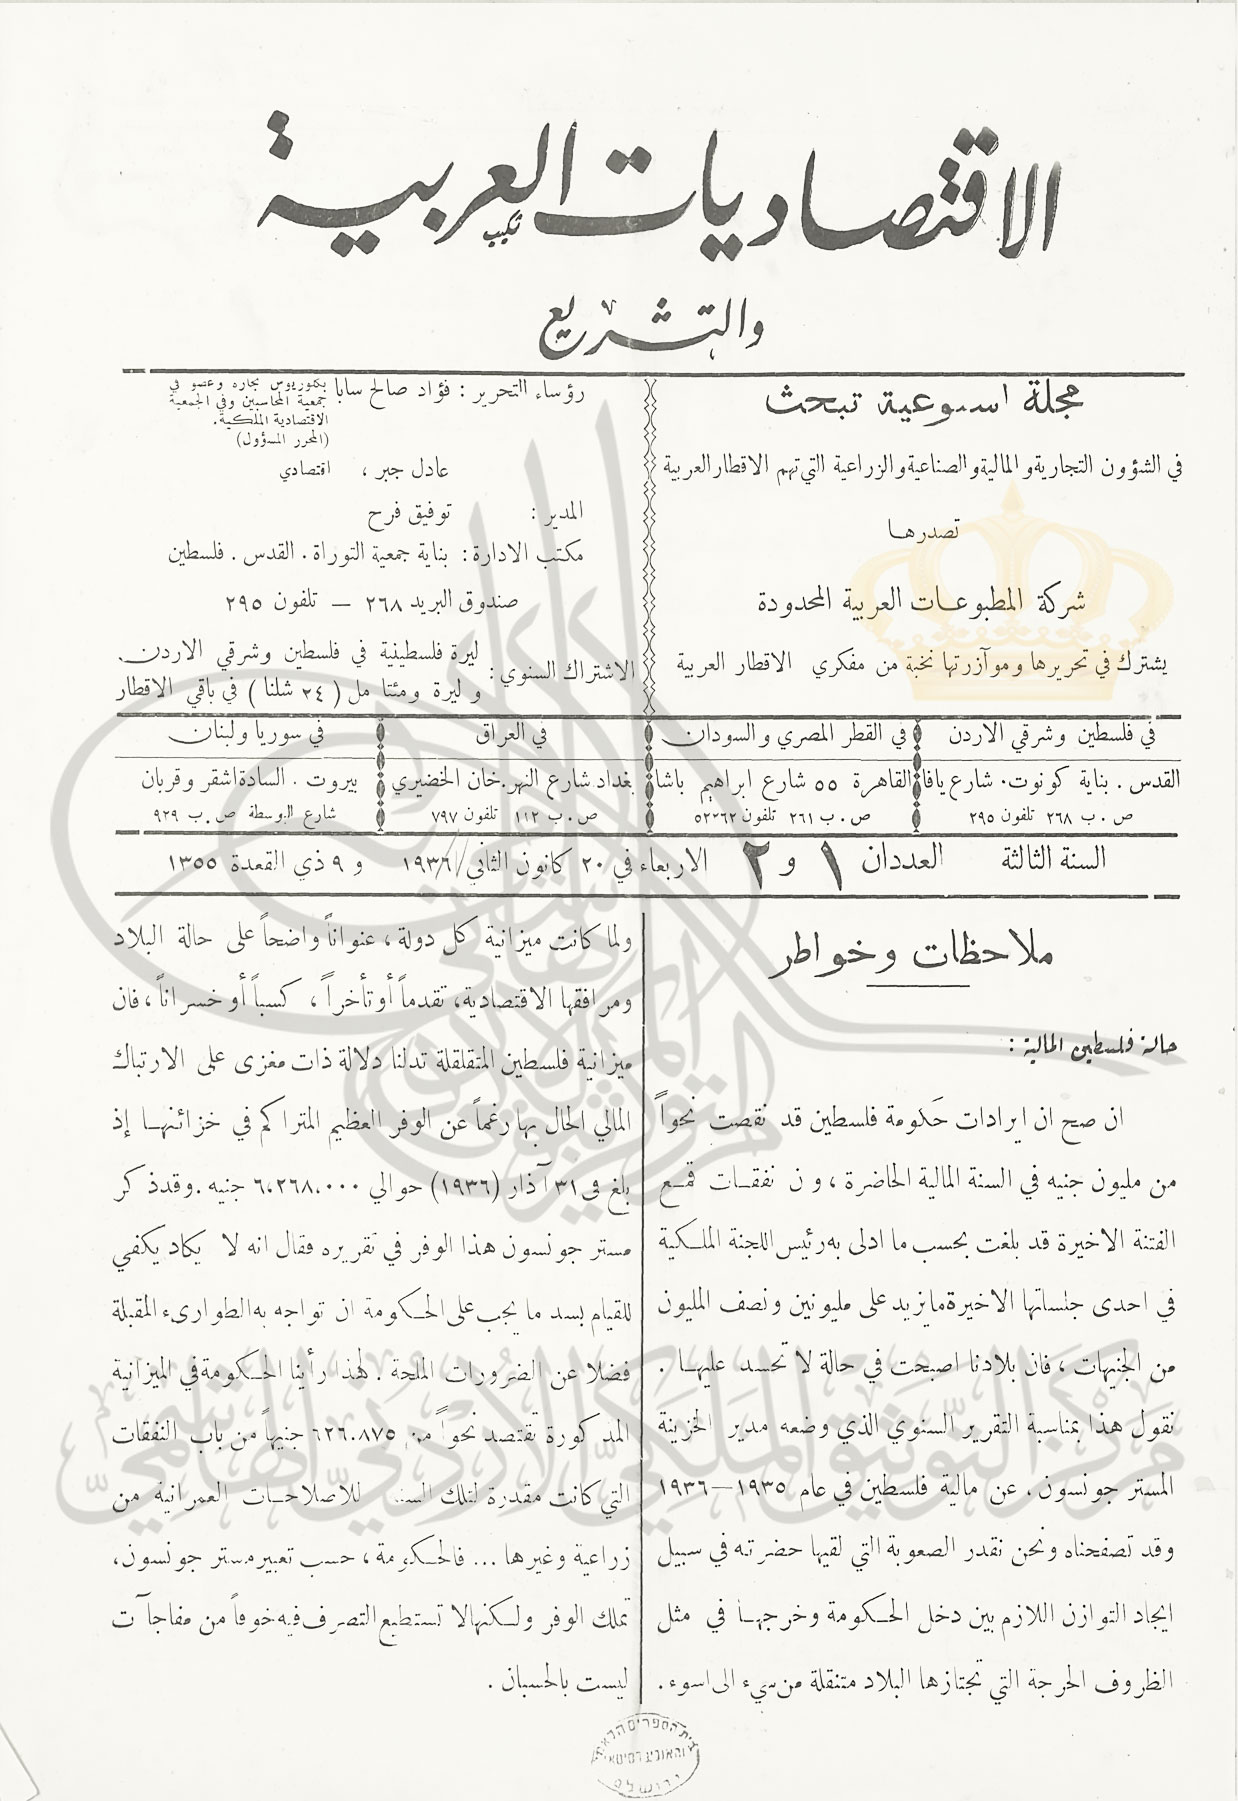 الاقتصاديات العربية
والتشريع
مجلة اسبوعية تبحث
في الشؤون التجارية والمالية والصناعية والزراعية التي تهم الاقطار العربية
تصدرها
شركة المطبوعات العربية المحدودة
يشترك في تحريرها وموآزرتها نخبة من مفكري الاقطار العربية
رؤساء التحرير : فؤاد صالح سابا
بكلوريوس تجاره وعضو في
جمعية المحاسبين وفي الجمعية
الاقتصادية الملكية.
(المحرر المسؤول)
عادل جبر ، اقتصادي
المدير : توفيق فرح
مكتب الادارة : بناية جمعية التوراة . القدس . فلسطين
صندوق البريد ٢٦٨ — تلفون ٢٩٥
الاشتراك السنوي :
ليرة فلسطينية في فلسطين وشرقي الاردن.
و ليرة ومئتا مل ( ٢٤ شلنا ) في باقي الاقطار
في فلسطين وشرقي الاردن
القدس . بناية كونوت . شارع يافا
ص . ب ٢٦٨ تلفون ٢٩٥
في القطر المصري والسودان
القاهرة ٥٥ شارع ابراهيم باشا
ص . ب ٢٦١ تلفون
في العراق
بغداد شارع النهر . خان الخضيري
ص . ب ١١٢ تلفون ٧٩٧
في سوريا ولبنان
بيروت . السادة اشقر وقربان
شارع البوسطة ص . ب ٩٢٩
السنة الثالثة العددان ١ و ٢ الاربعاء في ٢٠ كانون الثاني ١٩٣٦ و ٩ ذي القعدة ١٣٥٥
ملاحظات وخواطر
حالة فلسطين المالية :
ان صح ان ايرادات حكومة فلسطين قد نقصت نحواً
من مليون جنيه في السنة المالية الحاضرة ، و ن نفقات قمع
الفتنة الاخيرة قد بلغت بحسب ما ادلى به رئيس اللجنة الملكية
في احدى جلساتها الاخيرة ما يزيد على مليونين ونصف المليون
من الجنيهات ، فان بلادنا اصبحت في حالة لا تحسد عليها .
نقول هذا بمناسبة التقرير السنوي الذي وضعه مدير الخزينة
المستر جونسون . عن مالية فلسطين في عام ١٩٣٥—١٩٣٦
وقد تصفحناه ونحن نقدر الصعوبة التي لقيها حضرته في سبيل
ايجاد التوازن اللازم بين دخل الحكومة وخرجها في مثل
الظروف الحرجة التي تجتازها البلاد متنقلة من سيء الى اسوء .
ولما كانت ميزانية كل دولة ، عنواناً واضحاً على حالة البلاد
ومرافقها الاقتصادية ، تقدماً أو تأخراً ، كسباً أو خسراناً ، فان
ميزانية فلسطين المتقلقلة تدلنا دلالة ذات مغزى على الارتباك
المالي الحال بها رغماً عن الوفر العظيم المتراكم في خزائنها إذ
بلغ في ٣١ آذار (١٩٣٦) حوالي ٦،٢٦٨،٠٠٠ جنيه . وقد ذكر
مستر جونسون هذا الوفر في تقريره فقال انه لا يكاد يكفي
للقيام بسد ما يجب على الحكومة ان تواجه به الطوارىء المقبلة
فضلا عن الضرورات الملحة . لهذا رأينا الحكومة في الميزانية
المذكورة تقتصد نحواً من ٦٢٦،٨٧٥ جنيهاً من باب النفقات
التي كانت مقدرة لتلك السنة للاصلاحات العمرانية من
زراعية وغيرها ... فالحكومة ، حسب تعبير مستر جونسون ،
تملك الوفر ولكنها لا تستطيع التصرف فيه خوفاً من مفاجآت
ليست بالحسبان .
مركز التوثيق الملكي الأردني الهاشمي